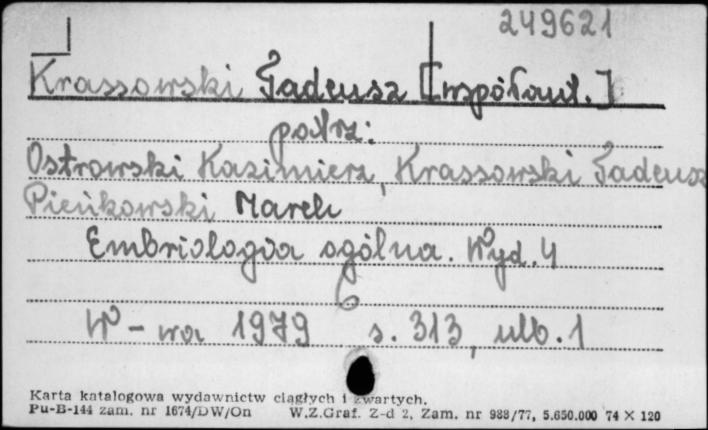 249621
Krassowski Tadeusz [współaut.]
patrz:
Ostrowski Kazimierz, Krassowski Tadeusz
Pieńkowski Marek
Embriologia ogólna. Wyd. 4
W-wa 1979 s. 313, ulb. 1
Karta katalogowa wydawnictw ciągłych i zwartych.
Pu-B-144 zam. nr 1674/DW/On W.Z.Graf. Z-d 2, Zam. nr 988/77, 5.650.000 74 × 120